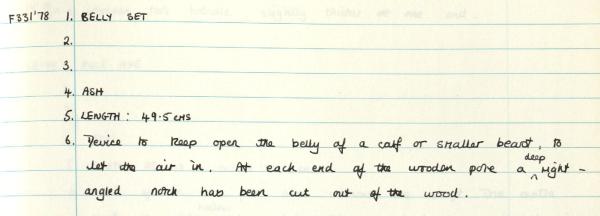 F331'78 1. BELLY SET
2.
3.
4. ASH
5. LENGTH: 49.5 CMS
6. Device to keep open the belly of a calf or smaller beast, to
let the air in. At each end of the wooden pole a deep right-
angled notch has been cut out of the wood.